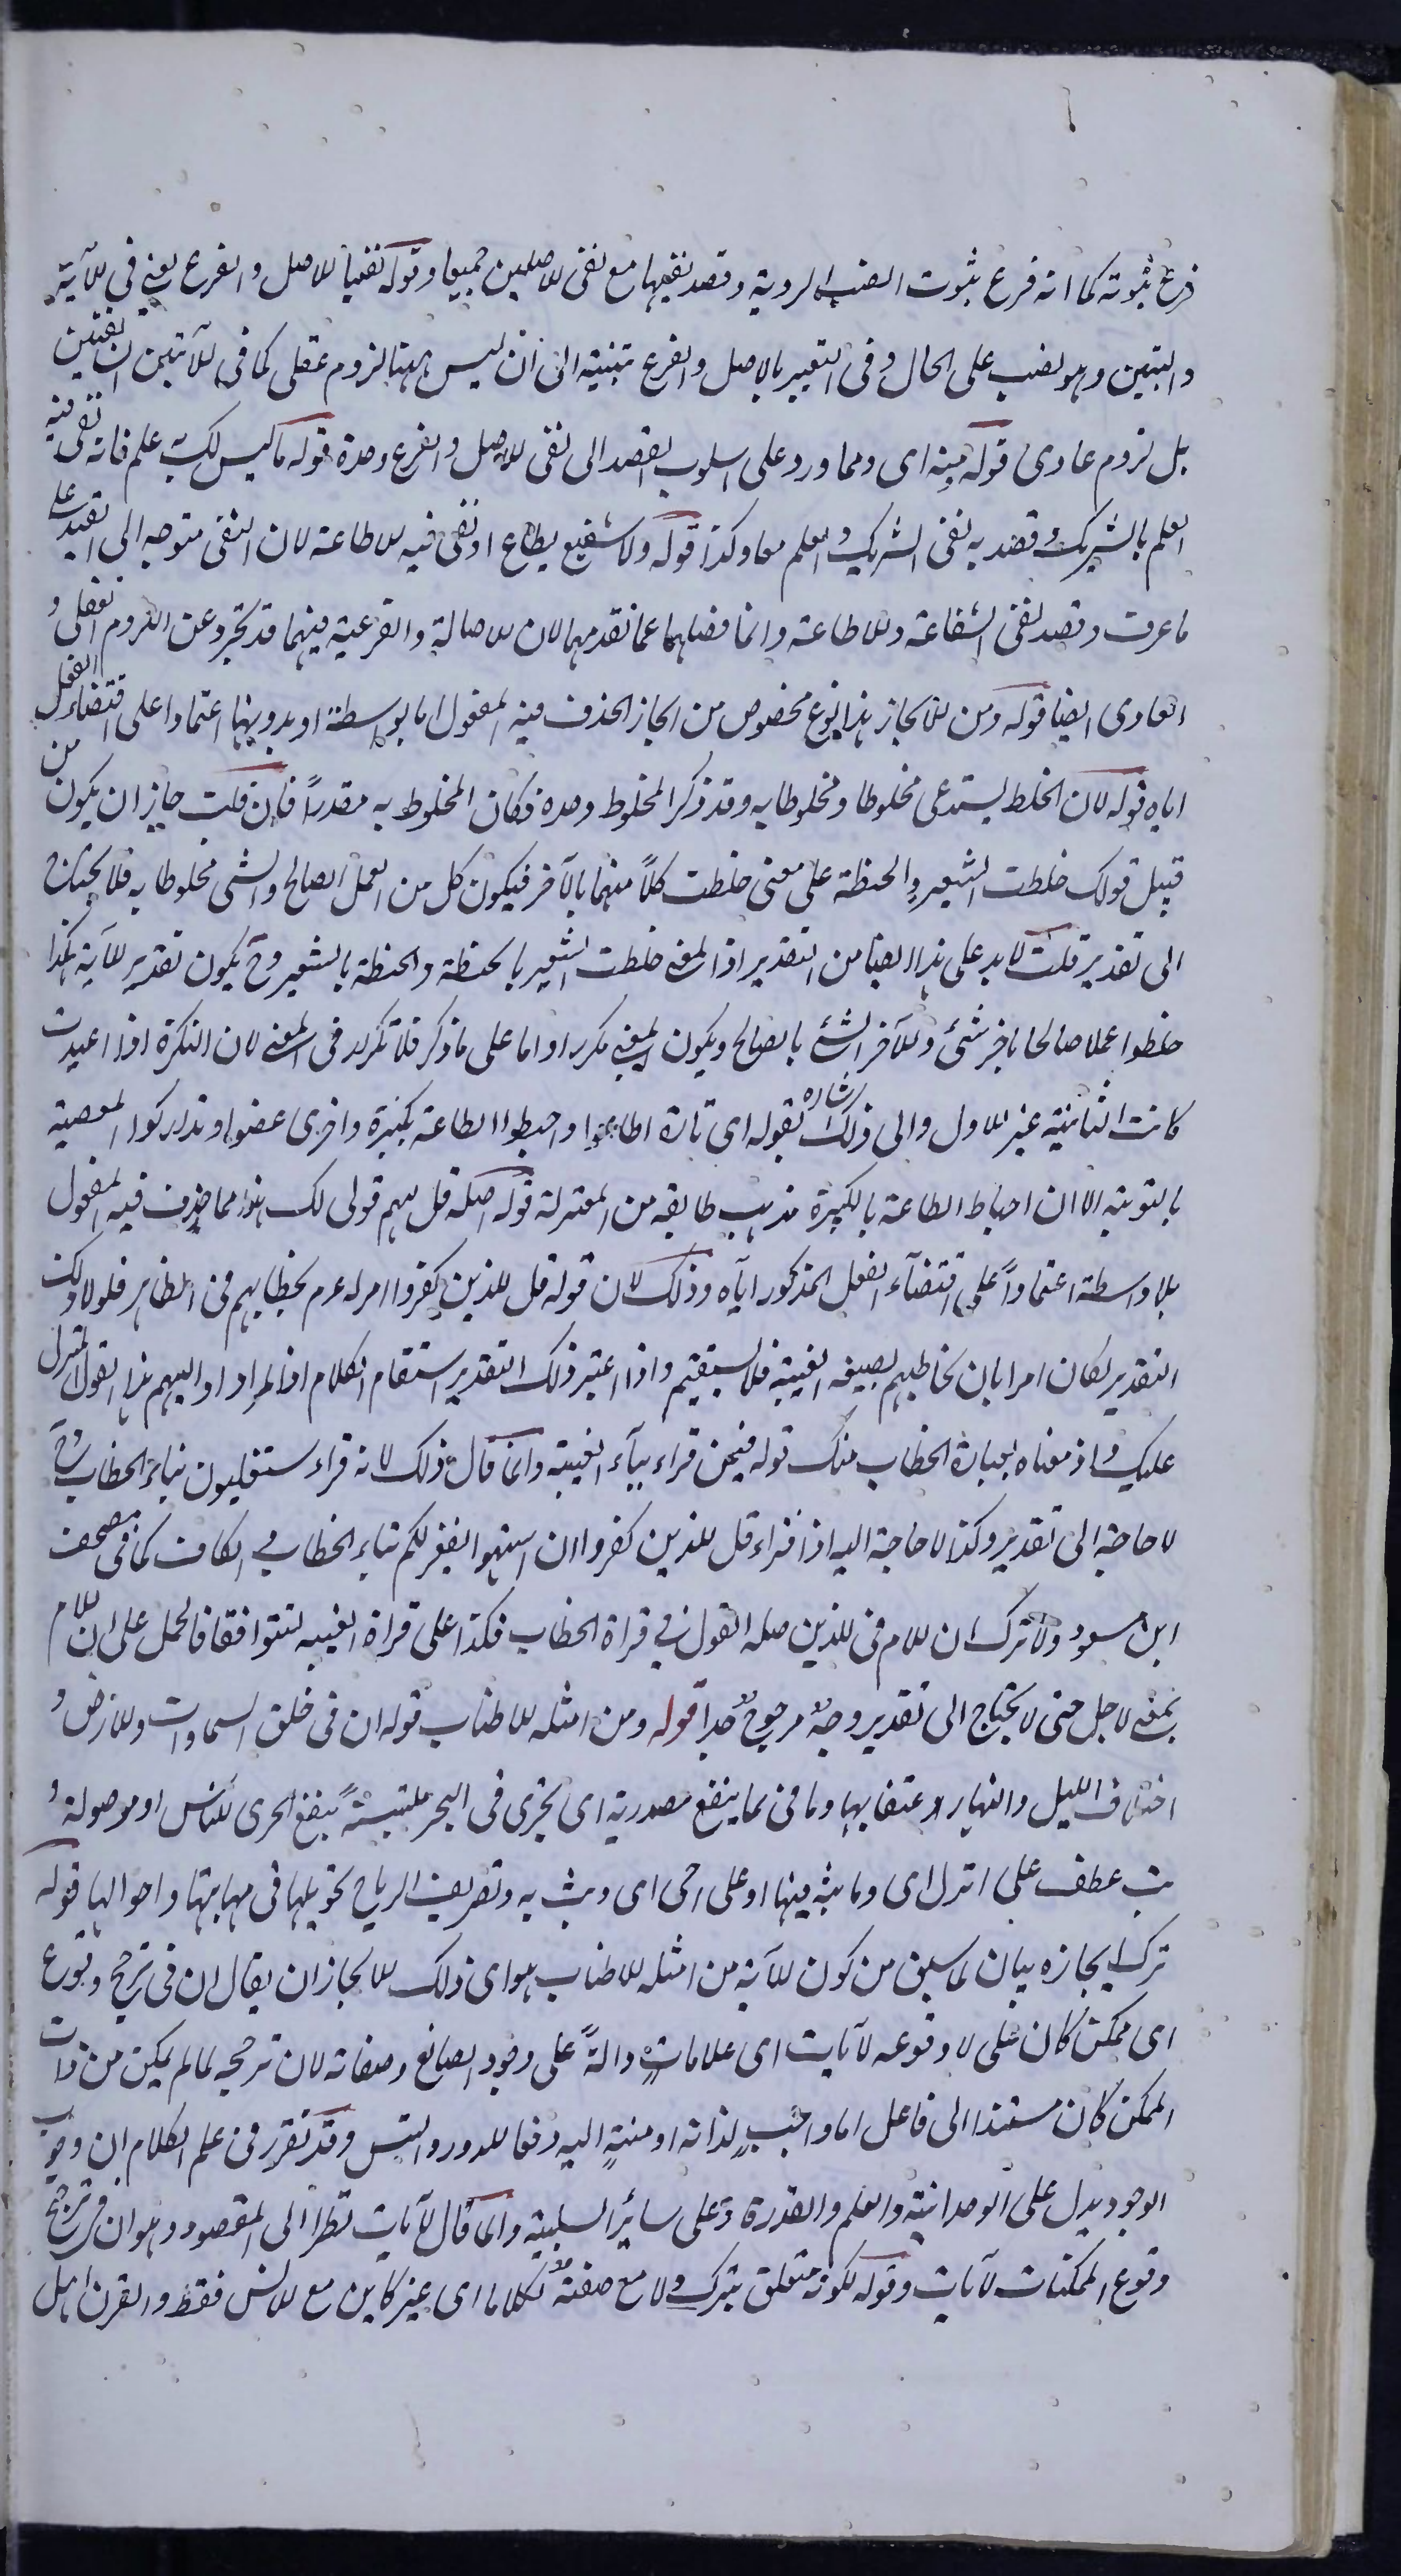 فرع ثبوته كما انه فرع بثبوت الضب الروية وقصد نفيها مع نفى الاصلين جميعا وقوله نفيا للاصل والفرع يعنى فى الآية
والتبيين وهو نصب على الحال وفى التعبير بالاصل والفرع تنبيه الى ان ليس ههنا لزوم عقلى كما فى الآيتين
بل لزوم عادى قوله منه اى ومما ورد على اسلوب القصد الى نفى الاصل والفرع وحده قوله ما ليس لك به علم فانه نفى فيه
العلم بالشريك وقصد به نفى الشريك والعلم معا وكذا قوله ولا شفيع يطاع اذ نفى فيه الاطاعة لان النفى متوجه الى القيد على
ما عرفت وقصد نفى الشفاعة والاطاعة وانما فصلهما عما تقدمهما لان الاصالة والفرعية فيهما قد تجرد عن اللزوم العقلى و
العادى ايضا قوله ومن الايجاز هذا نوع مخصوص من ايجاز الحذف فيه المفعول اما بواسطة او بدونها اعتمادا على اقتضاء الفعل
اياه قوله لان الخلط يستدعى مخلوطا ومخلوطا به وقد ذكر المخلوط وحده فكان المخلوط به مقدرا فان قلت جاز ان يكون من
قبيل قولك خلطت الشعير والحنطة على معنى خلطت كلا منهما بالآخر فيكون كل من العمل الصالح والسئ مخلوطا به فلا يحتاج
الى تقدير قلت لا بد على هذا ايضا من التقدير اذ المعنى خلطت الشعير بالحنطة والحنطة بالشعير وح يكون تقدير الآية هكذا
خلطوا عملا صالحا باخر سئ والآخر السئ بالصالح ويكون المعنى مكررا واما على ما ذكر فلا تكرار فى المعنى لان النكرة اذا اعيدت
كانت الثانية غير الاول والى ذلك اشاره بقوله اى تارة اطاعوا واحبطوا الطاعة بكبيرة واخرى عصوا وتداركوا المعصية
بالتوبة الا ان احباط الطاعة بالكبيرة مذهب طايفه من المعتزلة قوله اصله قل لهم قولى لك هذا مما حذف فيه المفعول
بلا واسطة اعتمادا على اقتضآء الفعل المذكور اياه وذلك لان قوله قل للذين كفروا امر له عم بخطابهم فى الظاهر فلولا ذلك
التقدير لكان امرا بان يخاطبهم بصيغه الغيبة فلا يستقيم واذا اعتبر ذلك التقدير استقام الكلام اذ المراد اد اليهم هذا القول المنزل
عليك واذ معناه بعبارة الخطاب منك قوله فيمن قراء بيآء الغيبة وانما قال ذلك لانه قراء ستغلبون بتاء الخطاب وح
لا حاجة الى تقدير وكذا لا حاجة اليه اذا قراء قل للذين كفروا ان انتهوا يغفر لكم بتاء الخطاب فى الكاف كما فى مصحف
ابن مسعود ولا ترك ان اللام فى للذين صله القول فى قراة الخطاب فكذا على قراة الغيبه لتتوافقا فالحمل على ان اللام
بمعنى لاجل حتى لا يحتاج الى تقدير وجه مرجوح جدا قوله ومن امثله الاطناب قوله ان فى خلق السماوات والارض و
اختلاف الليل والنهار اعتقابهما وما فى بما ينفع مصدرية اى تجرى فى البحر ملتبسة بنفع الجرى للناس او موصولة و
بث عطف على انزل اى وما بث فيها او على احى اى وبث به وتصريف الرياح تحويلها فى مهابها واحوالها قوله
ترك ايجازه بيان لما سبق من كون الآية من امثله الاطناب هو اى ذلك الايجاز ان يقال ان فى ترجح وقوع
اى ممكن كان على لا وقوعه لآيات اى علامات دالة على وجود الصانع وصفاته لان ترجحه لما لم يكن من ذات
الممكن كان مستندا الى فاعل اما واجب لذاته او منته اليه دفعا للدور والتس وقد تقرر فى علم الكلام ان وجوب
الوجود يدل على الوحدانية والعلم والقدرة وعلى سائر السلبية وانما قال لآيات نظرا الى المقصود وهو ان فى ترجح
وقوع الممكنات لآيات وقوله لكونه متعلق بترك ولا مع صفة لكلاما اى غير كاين مع الانس فقط والقرن اهل